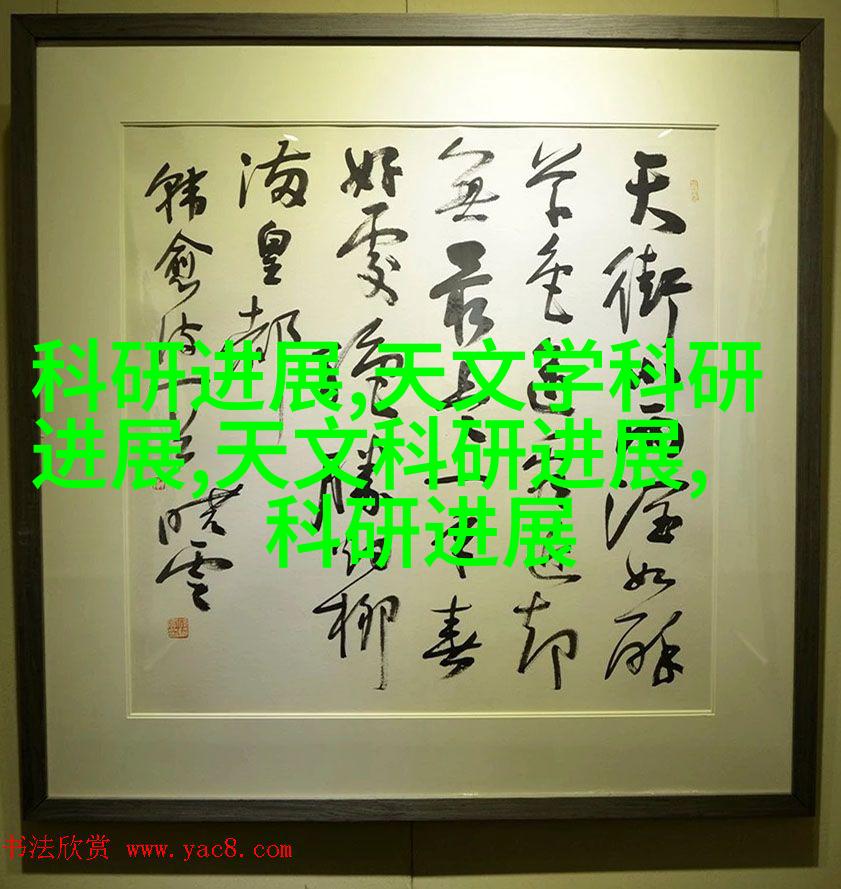 天街小雨潤如酥
草色遥看近却
無最是一年春
好處絕勝烟柳
滿皇都
韓愈詩一首 曉雲
科研进展,天文学科研
进展,天文科研进展,
科研进展
书法欣赏 www.yac8.com